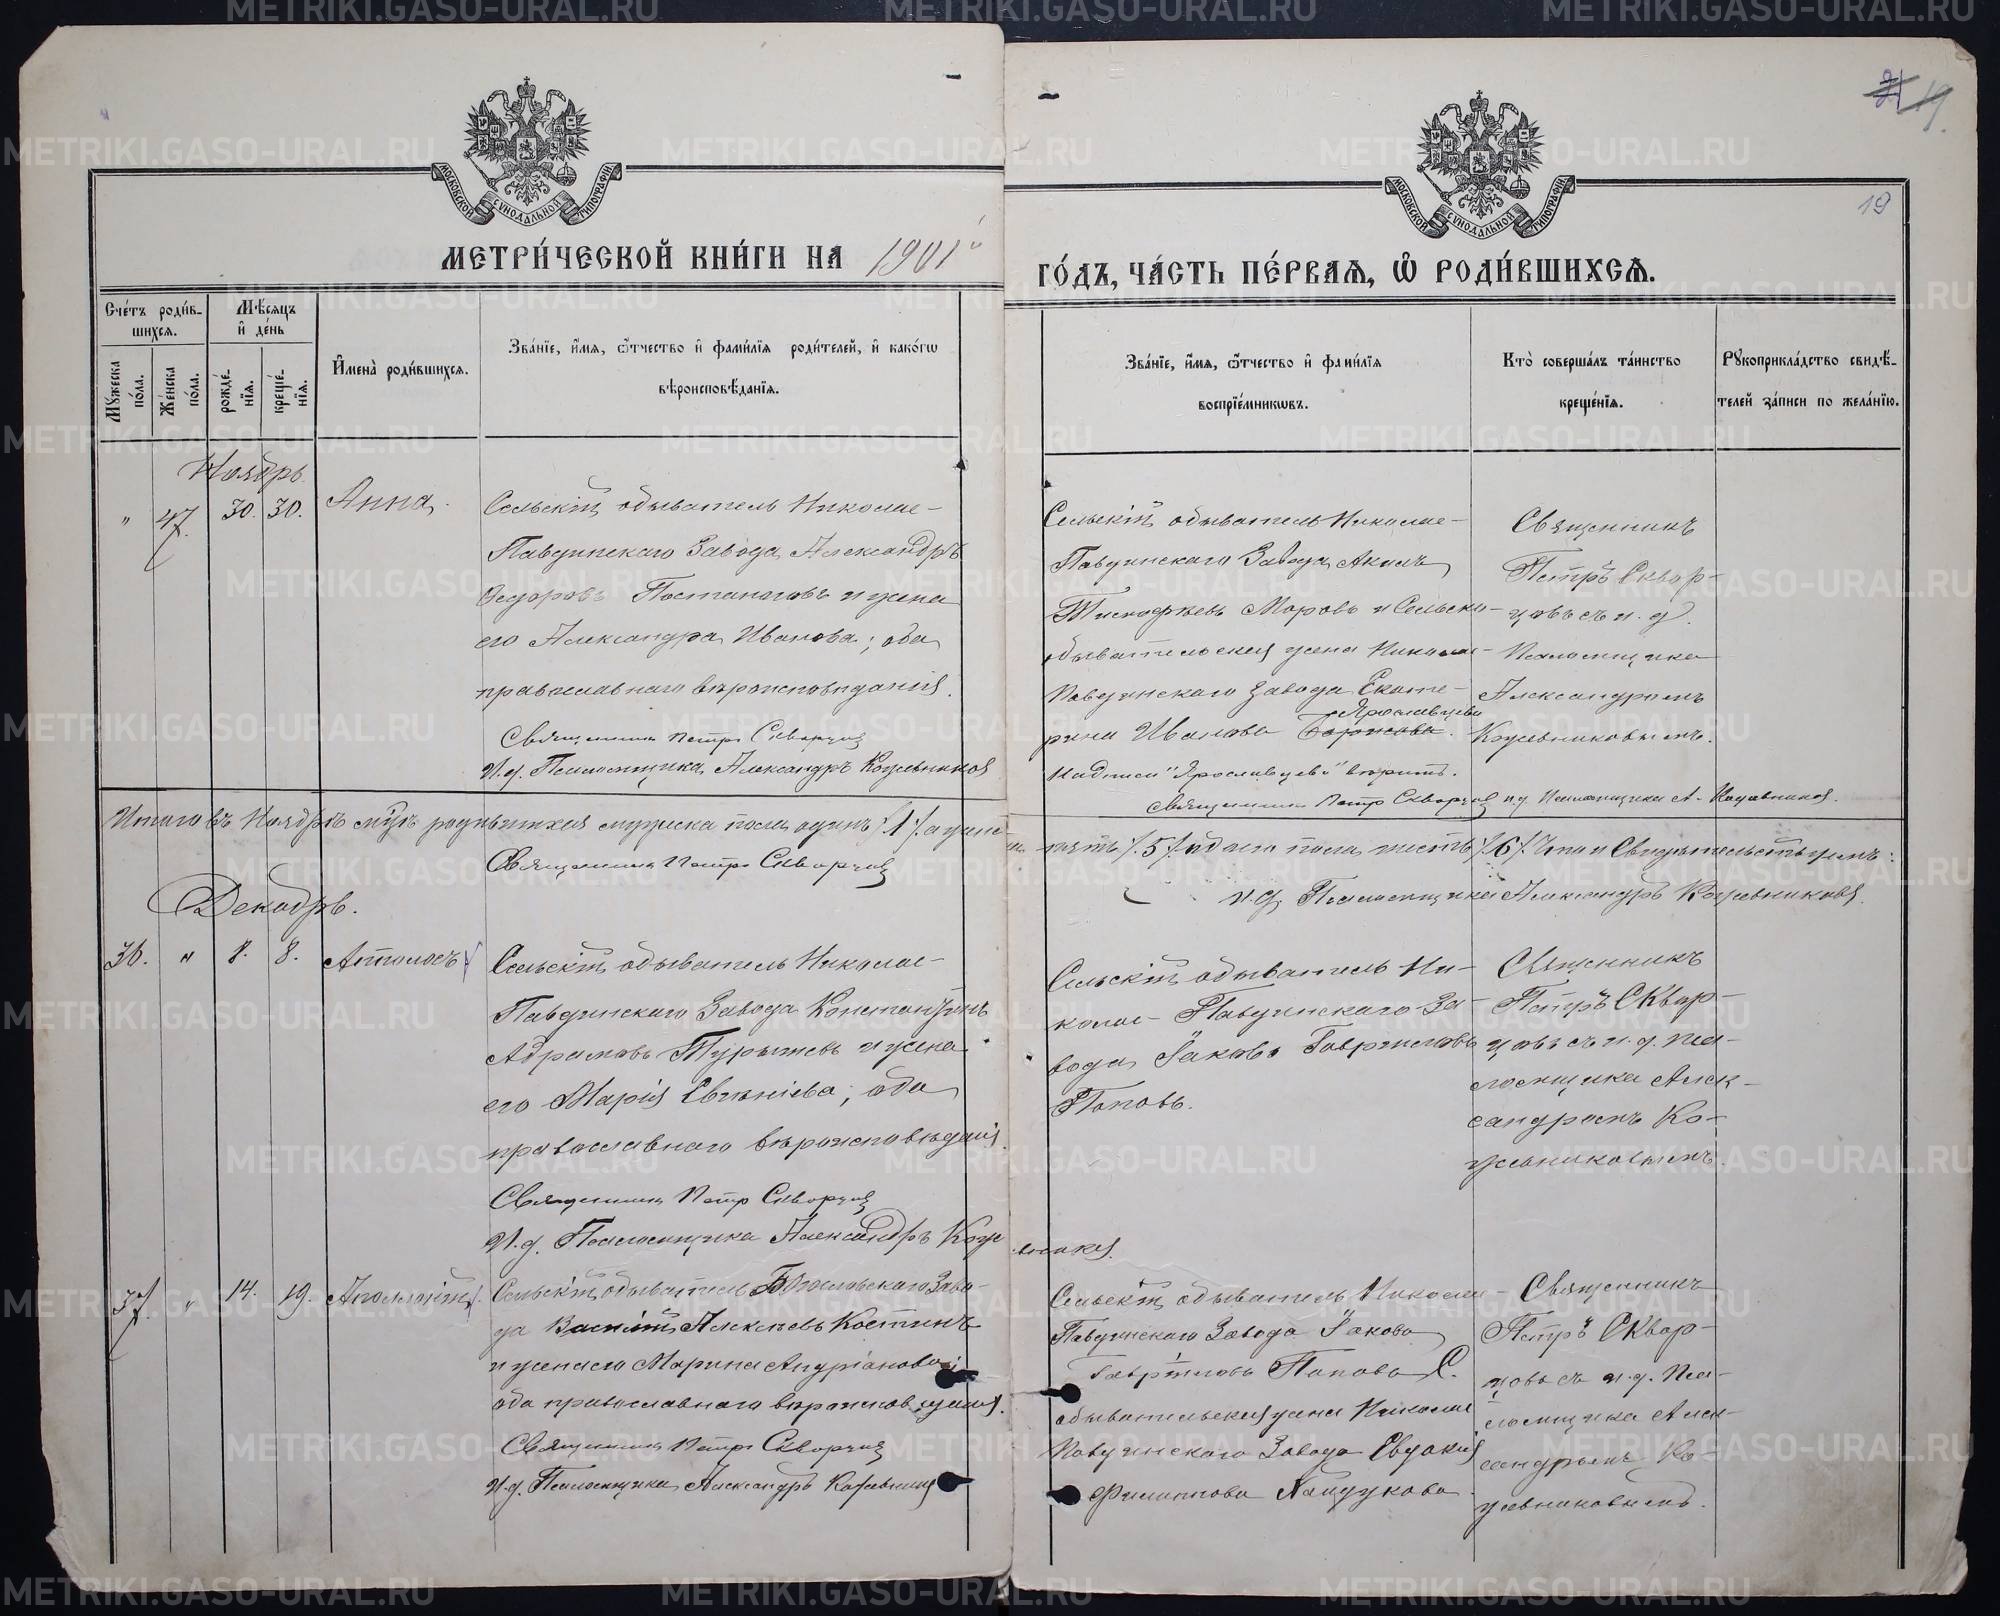 МЕТРИ́ЧЕСКОЙ КНИ́ГИ НА 1901й
ГО́ДЪ, ЧА́СТЬ ПЕ́РВАЯ, Ѡ РОДИ́ВШИХСЯ.
МОСКОВСКОЙ СѴНОДАЛЬНОЙ ТИПОГРАФІИ
МОСКОВСКОЙ СѴНОДАЛЬНОЙ ТИПОГРАФІИ
21 19.
19
Сче́тъ роди́в-
шихся.
Мѣ́сяцъ
и҆ де́нь
Мꙋжеска по́ла.
Же́нска по́ла.
рожде́-
нїя.
креще́-
нїя.
И҆мена̀ роди́вшихся.
Зва́нїе, и҆́мя, ѻ҆́тчество и҆ фами́лїя роди́телей, и҆ како́гѡ
вѣроисповѣ́данїя.
Зва́нїе, и҆́мя, ѻ҆́тчество и҆ фами́лїя
воспрїе́мникѡвъ.
Кто̀ соверша́лъ та́инство
креще́нїя.
Рꙋкоприкла́дство свидѣ́-
телей за́писи по жела́нїю.
Ноябрь
" 47. 30. 30. Анна.
Сельскій обыватель Николае-
Павдинскаго Завода Александръ
Ѳедоровъ Постаноговъ и жена
его Александра Иванова; оба
православнаго вѣроисповѣданія.
Священникъ Петръ Скворцовъ
И.д. Псаломщика Александръ Кожевниковъ
Сельскій обыватель Николае-
Павдинскаго Завода
Моровъ и Сельска-
обывательская жена Николае-
Павдинскаго Завода Екате-
рина Иванова Ярославцева
Надписи "Ярославцева" вѣрить.
Священникъ Петръ Скворцовъ и.д. Псаломщика А. Кожевниковъ.
Священникъ
Петръ Сквор-
цовъ съ и.д.
Псаломщика
Александромъ
Кожевниковымъ.
Итого въ Ноябрѣ мцѣ родившихся мужеска пола одинъ /1/. а женс-
пять /5/. обоего пола шесть /6/. Что и Свидѣтельствуемъ:
Священникъ Петръ Скворцовъ
и.д. Псаломщика Александръ Кожевниковъ.
Декабрь.
36. " 8. 8. Апполосъ
Сельскій обыватель Николае-
Павдинскаго Завода Константинъ
Абрамовъ и жена
его Марія Евгеніева; оба
православнаго вѣроисповѣданія.
Священникъ Петръ Скворцовъ
И.д. Псаломщика Александръ Кожевниковъ.
Сельскій обыватель Ни-
колае-Павдинскаго За-
вода Іаковъ Гавріиловъ
Поповъ.
Священникъ
Петръ Сквор-
цовъ съ и.д. пса-
ломщика Алек-
сандромъ Ко-
жевниковымъ.
37. " 14. 19. Аполлоній
Сельскій обыватель Богословскаго Заво-
да Василій Алексѣевъ Костинъ
и жена его Марина Андріанова;
оба православнаго вѣроисповѣданія.
Священникъ Петръ Скворцовъ
И.д. Псаломщика Александръ Кожевниковъ
Сельскій обыватель Николае-
Павдинскаго Завода Іаковъ
Гавріиловъ Поповъ С.
обывательская жена Николае
Павдинскаго Завода Евдокія
Филиппова Кайдукова.
Священникъ
Петръ Сквор-
цовъ съ и.д. Пса-
ломщика Алек-
сандромъ Ко-
жевниковымъ.
METRIKI.GASO-URAL.RU